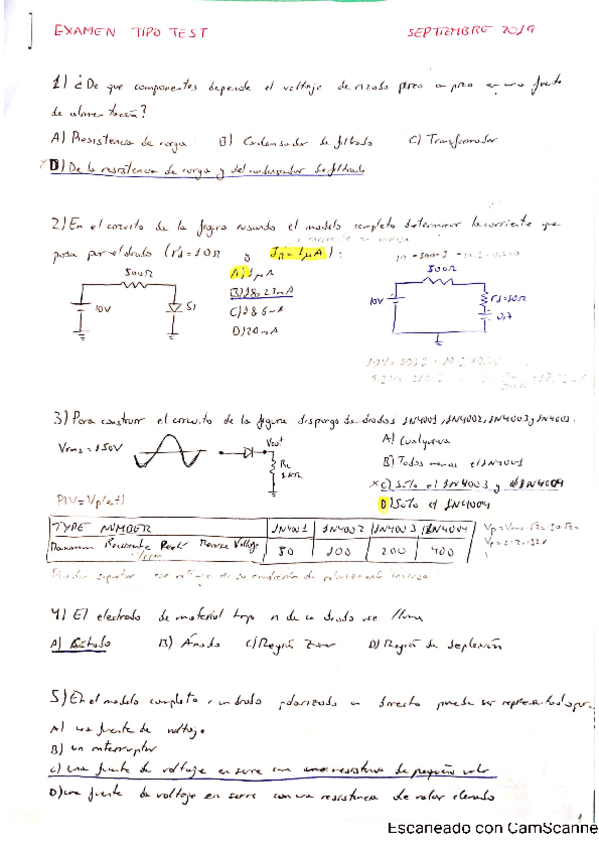 EXAMEN TIPO TEST
SEPTIEMBRE 2019
1) ¿De que componentes depende el voltaje de rizado pico a pico en una fuente
de alimentación?
A) Resistencia de carga B) Condensador de filtrado C) Transformador
D) De la resistencia de carga y del condensador de filtrado
2) En el circuito de la figura usando el modelo completo determinar la corriente que
pasa por el diodo (r'd = 10Ω y IR = 1μA):
500Ω
10V
S1
A) 1μA
B) 18,23mA
C) 18,6mA
D) 20mA
500Ω
10V
rd=10Ω
0,7
3) Para construir el circuito de la figura dispongo de diodos 1N4001, 1N4002, 1N4003 y 1N4004.
Vrms = 150V
Vout
RL
PIV = Vp(out)
A) Cualquiera
B) Todos menos el 1N4001
C) Sólo el 1N4003 y 1N4004
D) Sólo el 1N4004
TYPE NUMBER 1N4001 1N4002 1N4003 1N4004
Maximum Recurrent Peak Reverse Voltage 50 100 200 400
Pueden soportar ese voltaje en su condición de polarización inversa
4) El electrodo de material tipo n de un diodo se llama
A) Cátodo B) Ánodo C) Región Zener D) Región de deplexión
5) En el modelo completo, un diodo polarizado en directo puede ser representado por:
A) una fuente de voltaje
B) un interruptor
C) una fuente de voltaje en serie con una resistencia de pequeño valor
D) una fuente de voltaje en serie con una resistencia de valor elevado
Escaneado con CamScanne